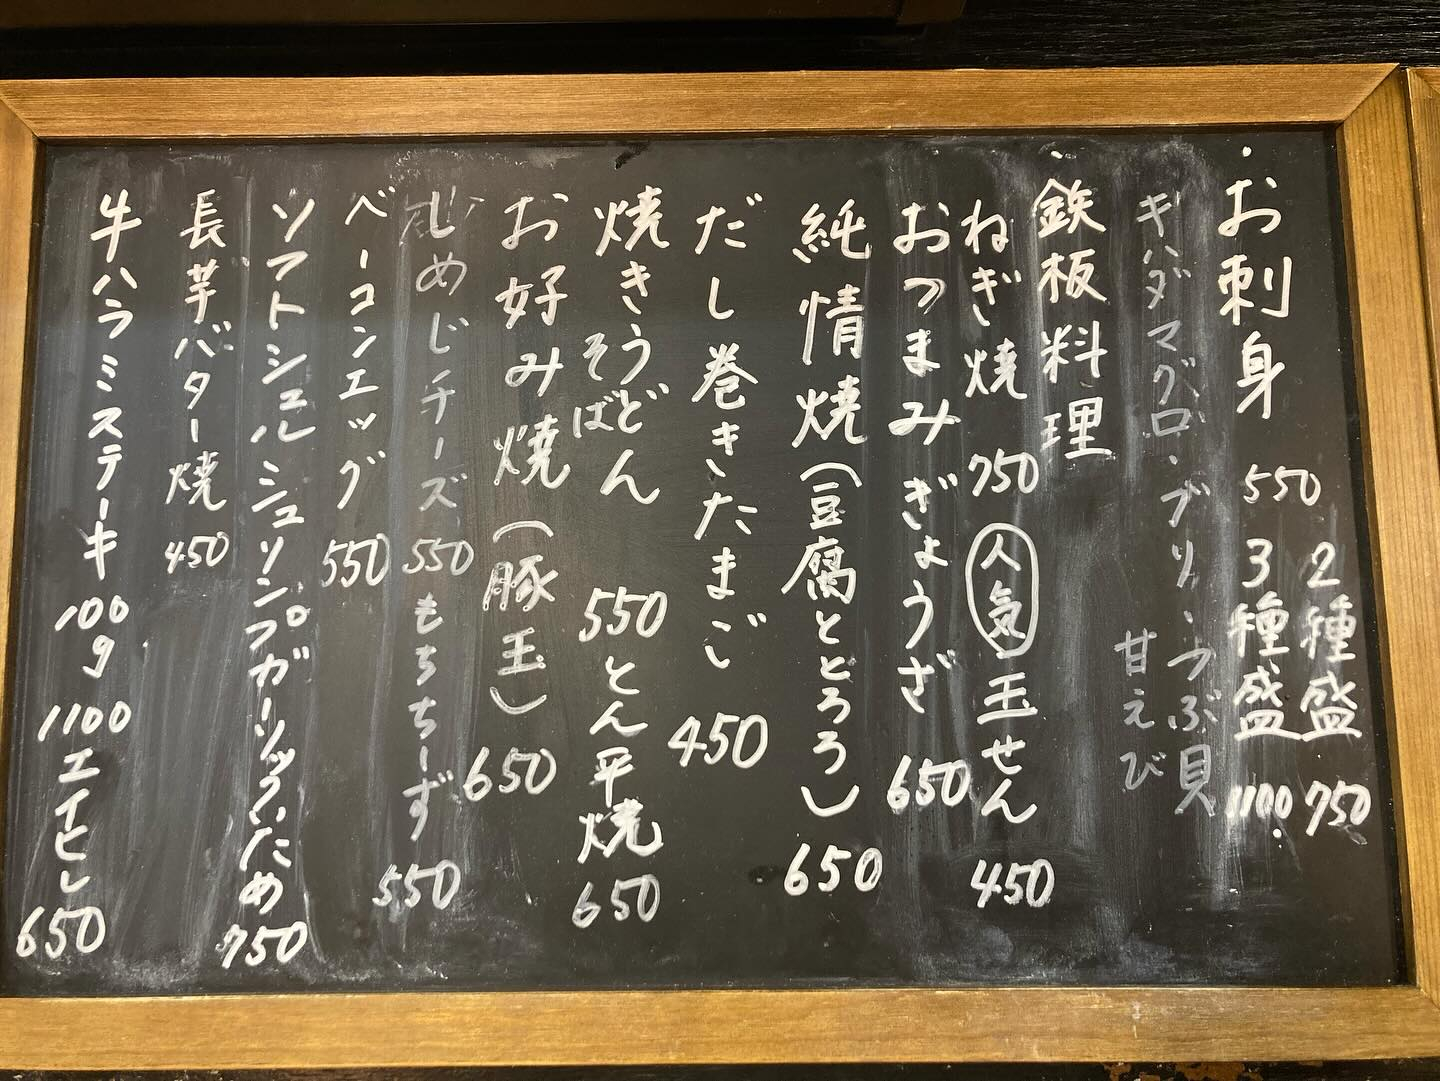 お刺身 550 2種盛 750
3種盛 1100
キハダマグロ・ブリ・つぶ貝
甘えび
鉄板料理
ねぎ焼 750 人気 玉せん 450
おつまみぎょうざ 650
純情焼(豆腐ととろろ) 650
だし巻きたまご 450
焼きうどん 550 とん平焼 650
そば
お好み焼(豚玉) 650
しめじチーズ 550 もちちーず 550
ベーコンエッグ 550
ソフトシェルシュリンプガーリックいため 750
長芋バター焼 450
牛ハラミステーキ 100g 1100 エイヒレ 650